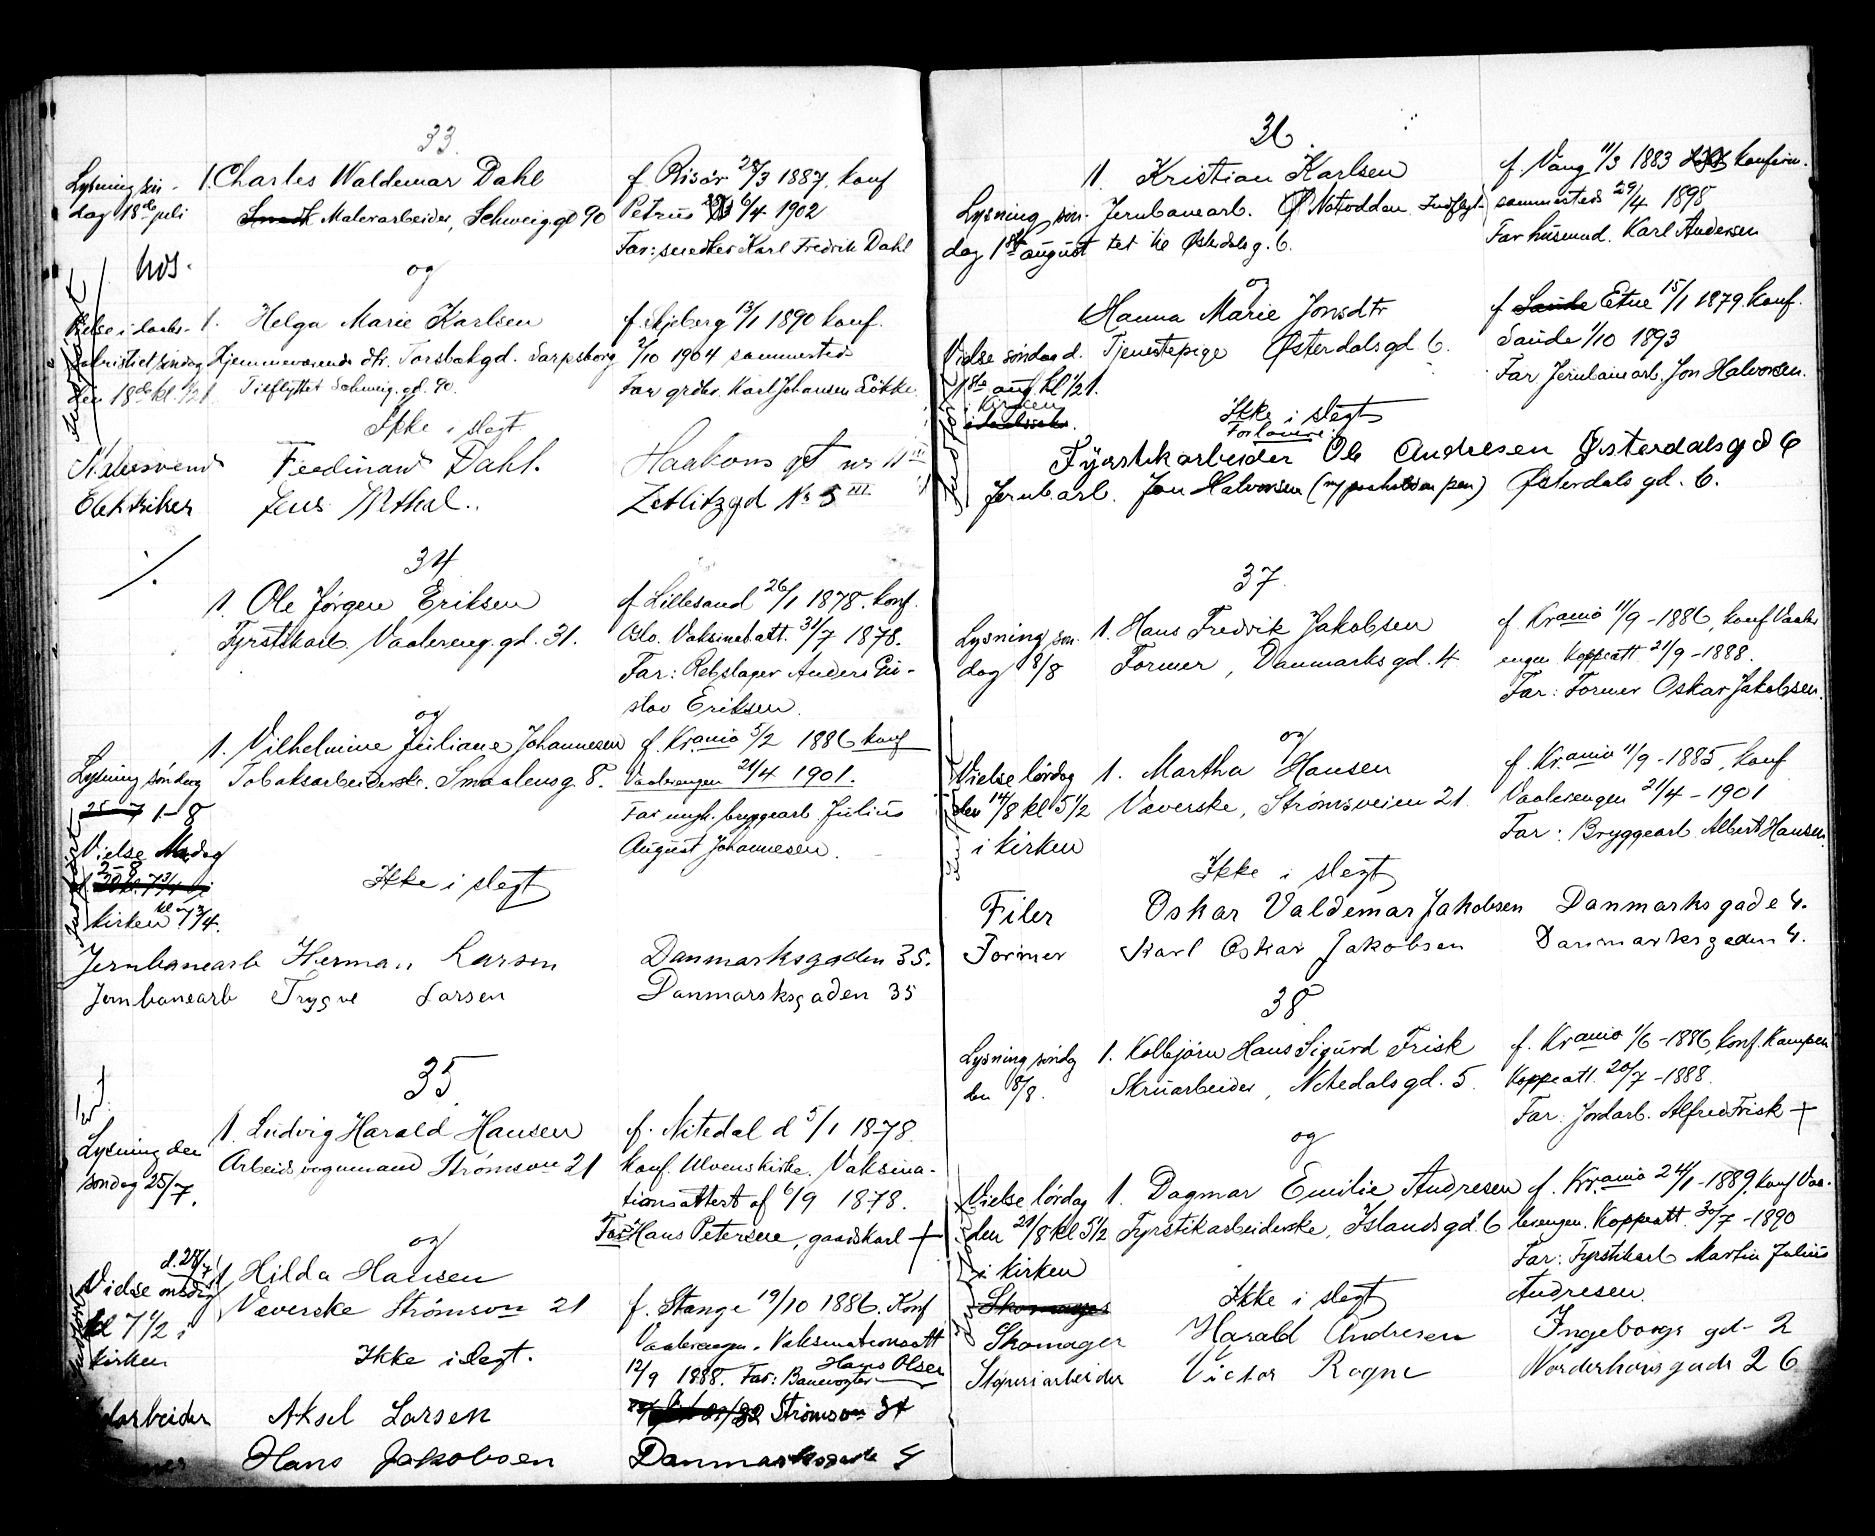 33.
Lysning søn- 1. Charles Waldemar Dahl f. Risør 28/3 1887. konf
dag 18de juli Malerarbeider, Schweig.gd 90 Petrus 6/4 1902
Far: snedker Karl Fredrik Dahl
hos.
og
1. Helga Marie Karlsen f. Skjeberg 13/1 1890 konf.
Hjemmeværende dtr. Torsbækgd. Sarpsborg 2/10 1904 sammesteds
den 18de kl Tilflyttet Schweig.gd. 90. Far grdbr. Karl Johansen Løkke
Ikke i slegt
Malersvend Ferdinand Dahl. Haakons gt nr 11 III
Elektriker Jens Zetlitzgd Nr 5 III
34
1. Ole Jørgen Eriksen f. Lillesand 26/1 1878. konf.
Fyrstikarb. Vaalereng.gd. 31. Oslo. Vaksinatt. 31/7 1878.
Far: Rebslager Anders Gu-
stav Eriksen.
og
1. Vilhelmine Juliane Johannesen f. Kr.ania 5/2 1886 konf
Lysning søndag Tobaksarbeiderske. Smaalensg 8. Vaalerengen 21/4 1901.
25-7 1-8 Far: bryggearb Julius
Vielse Mandag August Johannesen.
2-8
Ikke i slegt
kirken kl 7 3/4.
Jernbanearb Herman Larsen Danmarksgaden 35.
Jernbanearb Trygve Larsen Danmarksgaden 35
35.
1. Ludvig Harald Hansen f. Nitedal d 5/1 1878.
Lysning den Arbeidsvognmand Strømsvn 21 konf. Ulvens kirke. Vaksina-
søndag 25/7. tionsattest af 6/9 1878.
Far Hans Petersen, gaardskarl +
og
d. 28/7
Vielse onsdag 1 Hilda Hansen
Væverske Strømsvn 21 f. Stange 19/10 1886. Konf
kl 7 1/2 i Vaalerengen. Vaksinationsatt
kirken Ikke i slegt. 12/9 1888. Far: Banevogter Hans Olsen
Aksel Larsen Strømsvn
Hans Jakobsen Danmarksgade 4
36.
1. Kristian Karlsen f. Vang 11/3 1883 konfirm.
Lysning søn- Jernbanearb. Notodden Indflyt- sammesteds 29/4 1898
dag 1ste august tet til Østerdalsg. 6. Far husmnd. Karl Andersen
og
Hanna Marie Jonsdtr f. Saude Etne 15/1 1879. konf.
Vielse søndag d. Tjenestepige Østerdalsgd 6. Saude 1/10 1893
1ste aug. kl 1/2 1. Far Jernbanearb. Jon Halvorsen.
i kirken
Ikke i slegt
Forlovere:
Fyrstikarbeider Ole Andresen Østerdalsgd 6
Jernb.arb. Jon Halvorsen (m/ paaholden pen) Østerdalsgd. 6.
37.
Lysning søn- 1. Hans Fredrik Jakobsen f. Kr.ania 11/9 - 1886, konf Vaaler
dag 8/8 Former, Danmarksgd. 4 engen Koppeatt. 21/9 - 1888.
Far: Former Oskar Jakobsen.
og
Vielse lørdag 1. Martha Hansen f. Kr.ania 11/9 - 1885, konf
den 14/8 kl 5 1/2 Væverske, Strømsveien 21. Vaalerengen 21/4 - 1901
i kirken Far: Bryggearb. Albert Hansen.
Ikke i slegt
Filer Oskar Valdemar Jakobsen Danmarksgade 4.
Former Karl Oskar Jakobsen Danmarksgaden 4.
38
Lysning søndg 1. Kolbjørn Hans Sigurd Frisk f. Kr.ania 1/6 - 1886, konf. Kampen
den 8/8. Skruarbeider, Nitedalsgd. 5. Koppeatt. 20/7 - 1888.
Far: Jordarb. Alfred Frisk +
og
Vielse lørdag 1. Dagmar Emilie Andresen f. Kr.ania 24/1 - 1889, konf Vaa-
den 21/8 kl 5 1/2 Fyrstikarbeiderske, Islandsgd 6 lerengen. Koppeatt. 30/7 - 1890
i kirken Far: Fyrstikarb Martin Julius
Skomager Ikke i slegt Andresen.
Skomager Harald Andresen Ingeborgs gd- 2
Støperiarbeider Victor Rogne Norderhovsgade 26